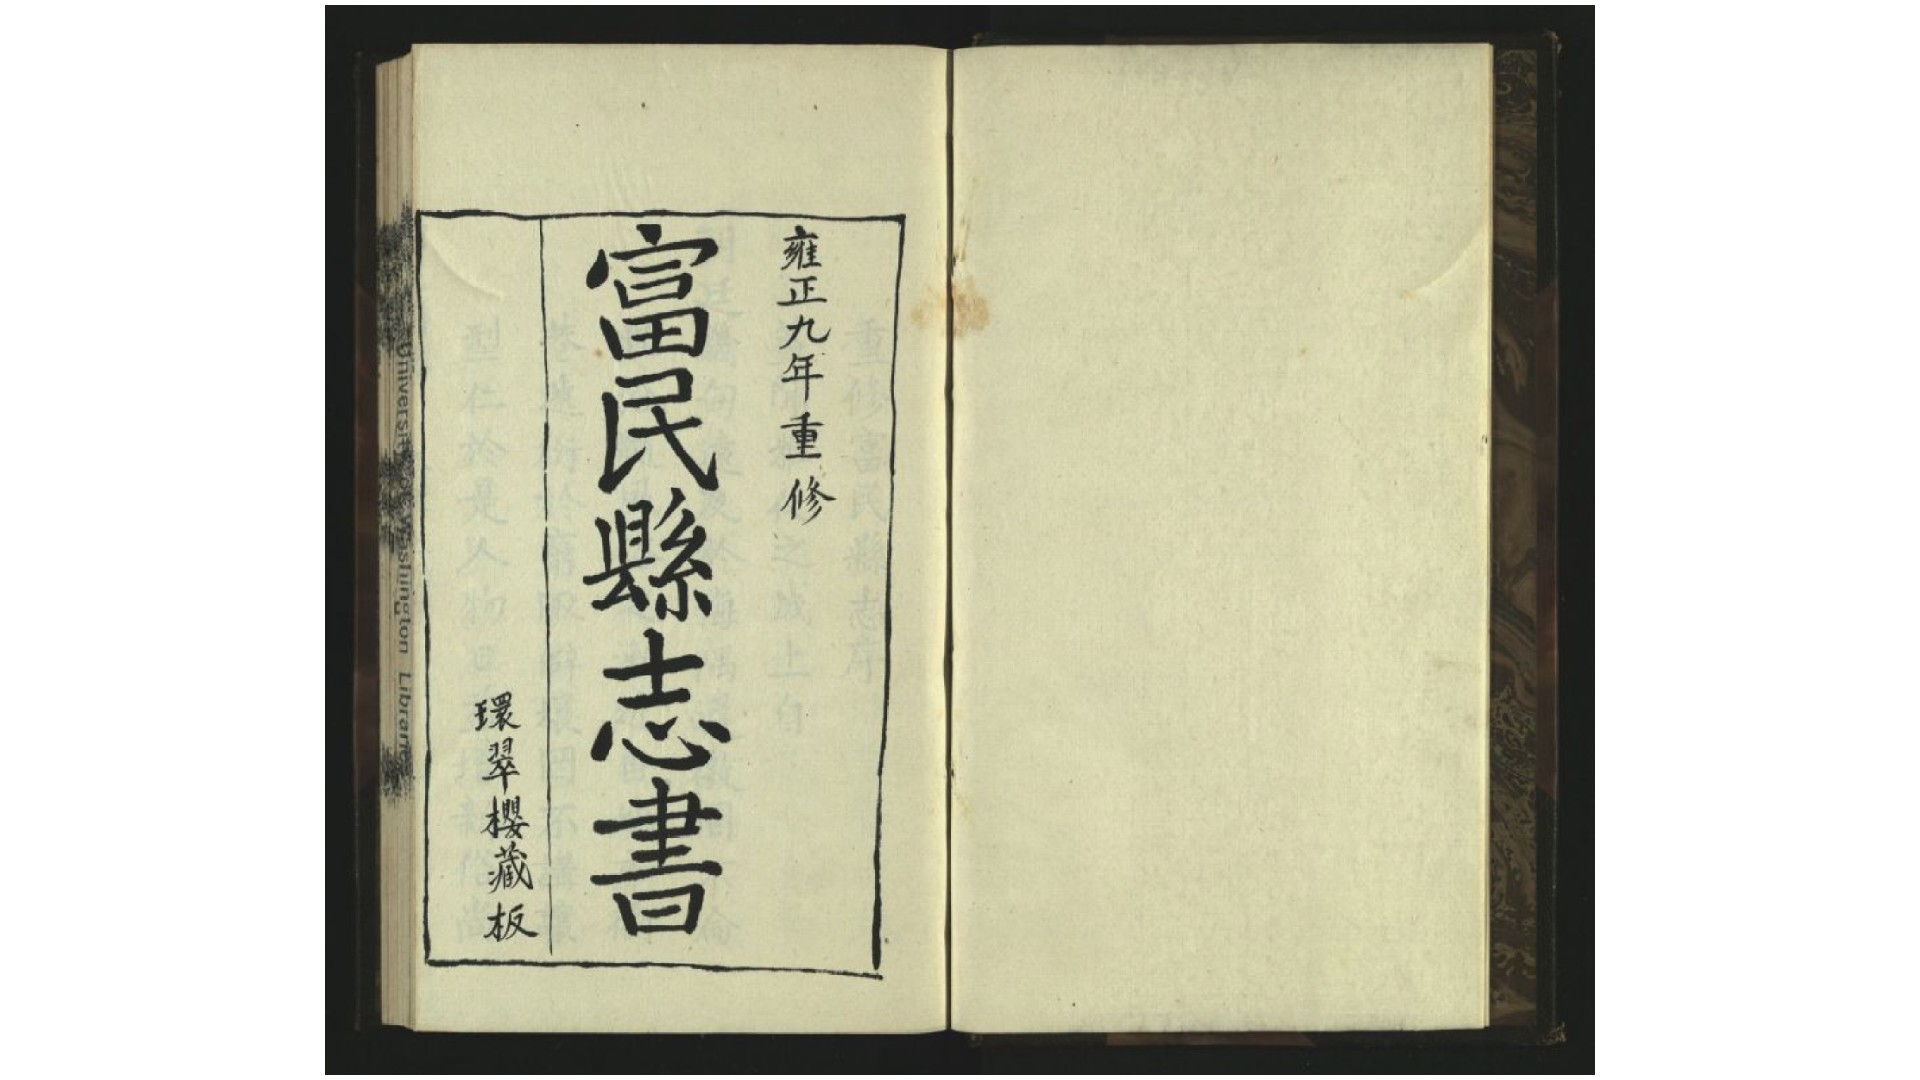 雍正九年重修
富民縣志書
環翠櫻藏板
University of Washington Libraries